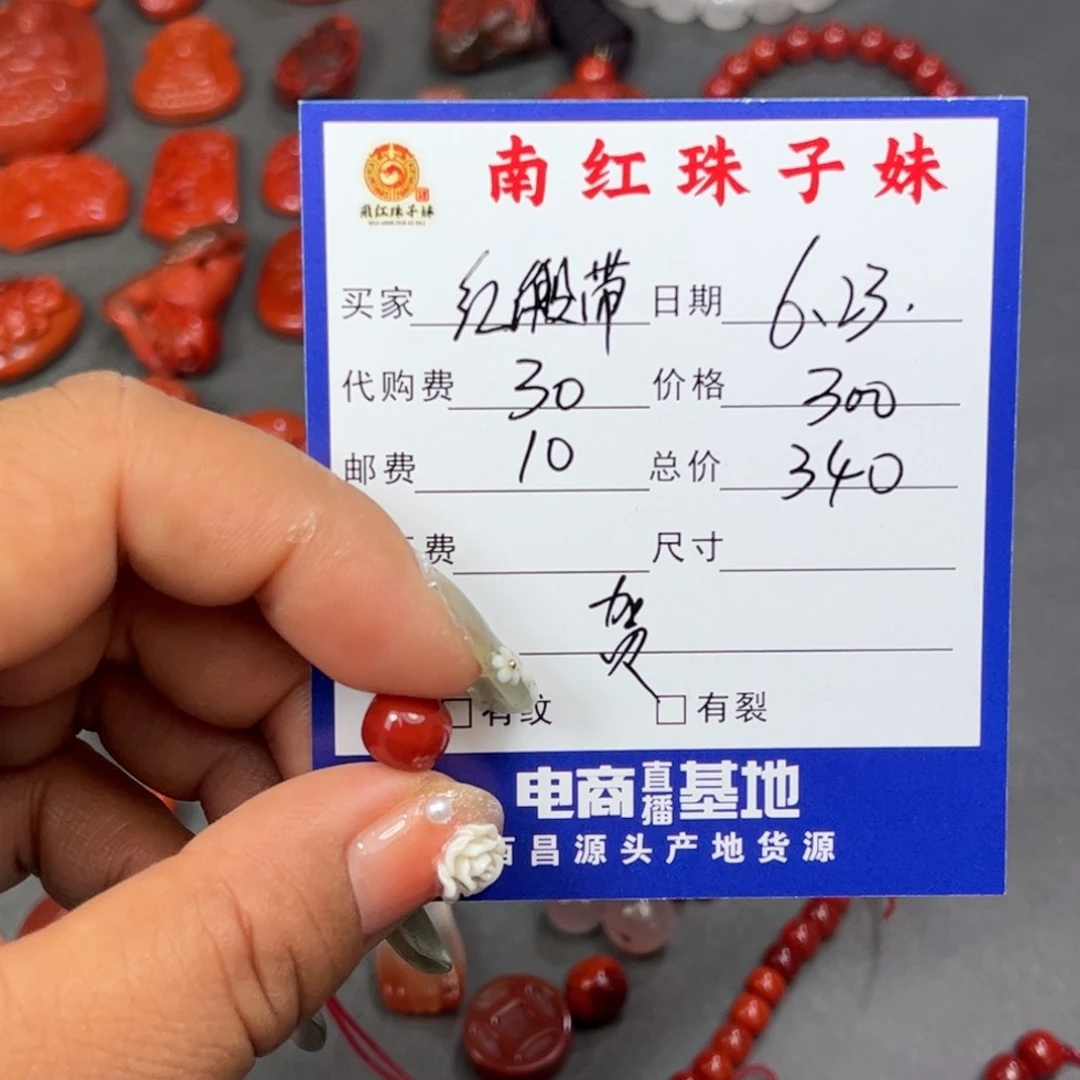 南红珠子妹
南红珠子妹
买家 红殿带 日期 6.23.
代购费 30 价格 300
邮费 10 总价 340
费 尺寸
贺
有纹 有裂
电商直播基地
百昌源头产地货源